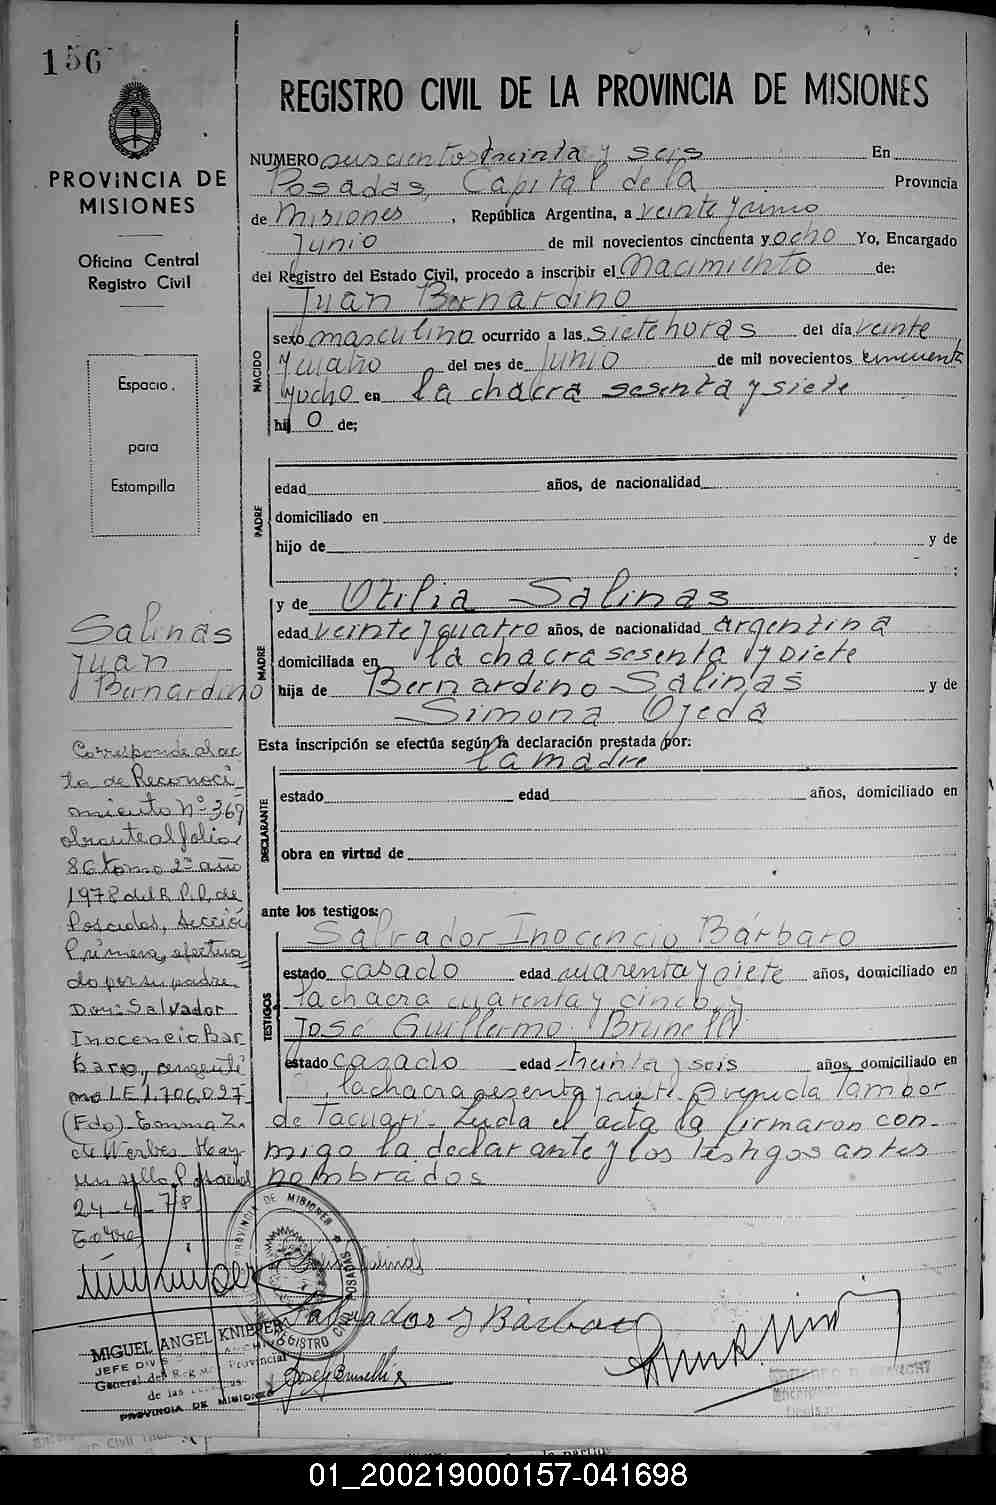 156
PROVINCIA DE
MISIONES
Oficina Central
Registro Civil
Espacio
para
Estampilla
Salinas
Juan
Bernardino
Corresponde al ac
ta de Reconoci
miento Nº 369
obrante al folio
86 tomo 2º año
1978 del R. P. P. de
Posadas, Sección
Primera, efectua
do por su padre
Don: Salvador
Inocencio Bar
baro, argenti
no L E 1.706.027
(Fdo) Emma Z.
de Werbes Hay
un sello Posadas
24-4-78
REGISTRO CIVIL DE LA PROVINCIA DE MISIONES
NUMERO suscientos treinta y seis En
Posadas, Capital de la Provincia
de Misiones, República Argentina, a veinte y cinco
Junio de mil novecientos cincuenta y ocho Yo, Encargado
del Registro del Estado Civil, procedo a inscribir el Nacimiento de:
Juan Bernardino
NACIDO
sexo masculino ocurrido a las siete horas del día veinte
y cuatro del mes de Junio de mil novecientos cincuenta
y ocho en la chacra sesenta y siete
hij o de;
PADRE
edad años, de nacionalidad
domiciliado en
hijo de y de
MADRE
y de Otilia Salinas
edad veinte y cuatro años, de nacionalidad argentina
domiciliada en la chacra sesenta y siete
hija de Bernardino Salinas y de
Simona Ojeda
Esta inscripción se efectúa según la declaración prestada por:
la madre
DECLARANTE
estado edad años, domiciliado en
obra en virtud de
ante los testigos:
TESTIGOS
Salvador Inocencio Bárbaro
estado casado edad cuarenta y siete años, domiciliado en
la chacra cuarenta y cinco, y
José Guillermo Brunelli
estado casado edad treinta y seis años, domiciliado en
la chacra sesenta y siete. Avenida Tambor
de Tacuarí. Leída el acta la firmaron con-
migo la declarante y los testigos antes
nombrados
Salvador I Bárbaro
José G Brunelli
PROVINCIA DE MISIONES
REGISTRO CIVIL
POSADAS
MIGUEL ANGEL KNIEPER
JEFE DIV
General del Reg Provincial
de las
PROVINCIA DE MISIONES
01_200219000157-041698